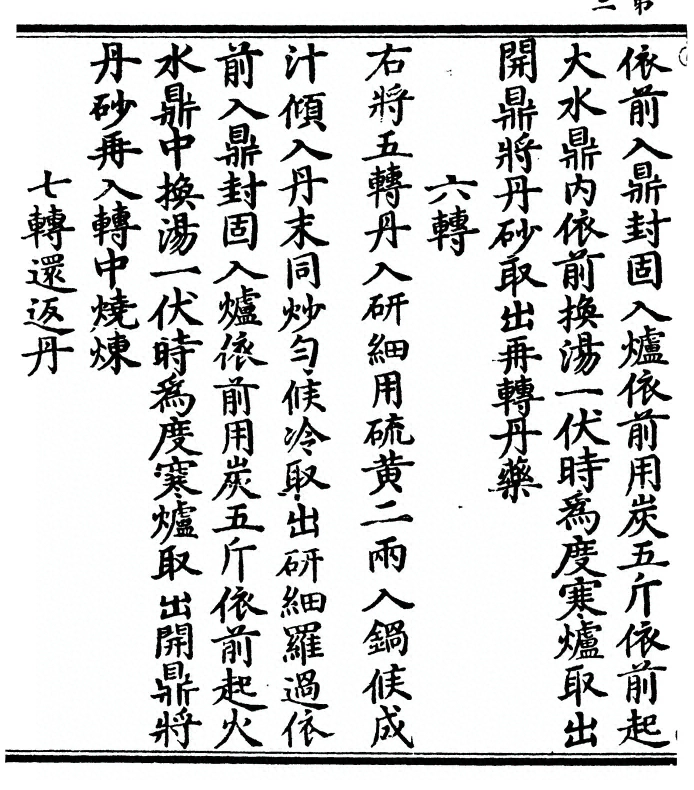 依前入鼎封固入爐依前用炭五斤依前起
火水鼎内依前換湯一伏時為度寒爐取出
開鼎將丹砂取出再轉丹藥
六轉
右將五轉丹入研細用硫黄二兩入鍋候成
汁傾入丹末同炒勻候冷取出研細羅過依
前入鼎封固入爐依前用炭五斤依前起火
水鼎中換湯一伏時為度寒爐取出開鼎將
丹砂再入轉中燒煉
七轉還返丹